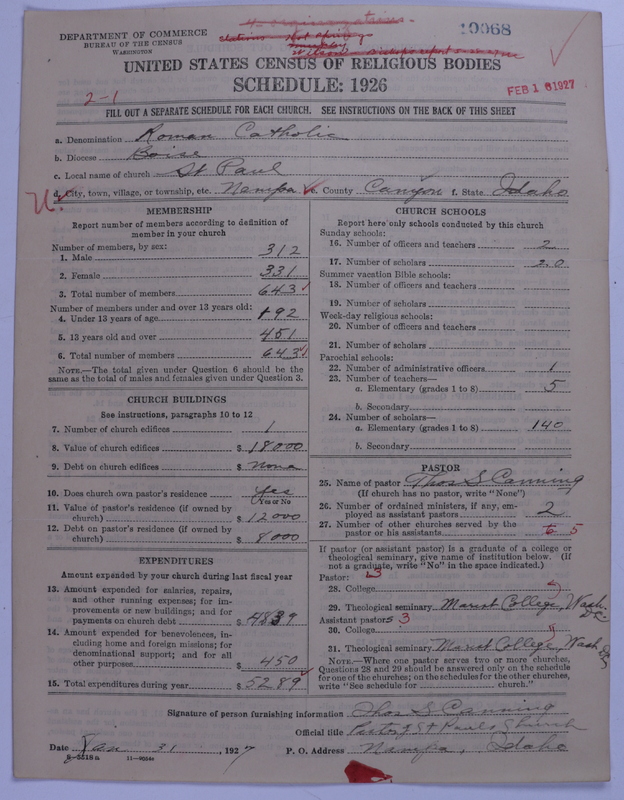 4 organizations.
10068
DEPARTMENT OF COMMERCE
BUREAU OF THE CENSUS
WASHINGTON
UNITED STATES CENSUS OF RELIGIOUS BODIES
SCHEDULE: 1926
FEB 1 6 1927
2-1
FILL OUT A SEPARATE SCHEDULE FOR EACH CHURCH. SEE INSTRUCTIONS ON THE BACK OF THIS SHEET
a. Denomination Roman Catholic
b. Diocese Boise
c. Local name of church St Paul
d. City, town, village, or township, etc. Nampa e. County Canyon f. State Idaho
U.
MEMBERSHIP
Report number of members according to definition of
member in your church
Number of members, by sex:
1. Male 312
2. Female 331
3. Total number of members 643
Number of members under and over 13 years old:
4. Under 13 years of age 192
5. 13 years old and over 451
6. Total number of members 643
NOTE.—The total given under Question 6 should be the
same as the total of males and females given under Question 3.
CHURCH BUILDINGS
See instructions, paragraphs 10 to 12
7. Number of church edifices 1
8. Value of church edifices $ 18000
9. Debt on church edifices $ none
10. Does church own pastor's residence yes
(Yes or No
11. Value of pastor's residence (if owned by
church) $ 12000
12. Debt on pastor's residence (if owned by
church) $ 8000
EXPENDITURES
Amount expended by your church during last fiscal year
13. Amount expended for salaries, repairs,
and other running expenses; for im-
provements or new buildings; and for
payments on church debt $ 4839
14. Amount expended for benevolences, in-
cluding home and foreign missions; for
denominational support; and for all
other purposes $ 450
15. Total expenditures during year $ 5289
CHURCH SCHOOLS
Report here only schools conducted by this church
Sunday schools:
16. Number of officers and teachers 2
17. Number of scholars 20
Summer vacation Bible schools:
18. Number of officers and teachers
19. Number of scholars
Week-day religious schools:
20. Number of officers and teachers
21. Number of scholars
Parochial schools:
22. Number of administrative officers 1
23. Number of teachers—
a. Elementary (grades 1 to 8) 5
b. Secondary
24. Number of scholars—
a. Elementary (grades 1 to 8) 140
b. Secondary
PASTOR
25. Name of pastor Thos S Canning
(If church has no pastor, write "None")
26. Number of ordained ministers, if any, em-
ployed as assistant pastors 2
27. Number of other churches served by the
pastor or his assistants 5
If pastor (or assistant pastor) is a graduate of a college or
theological seminary, give name of institution below. (If
not a graduate, write "No" in the space indicated.)
Pastor: 3
28. College
29. Theological seminary Marist College, Wash. D.C.
Assistant pastors 3
30. College
31. Theological seminary Marist College, Wash
NOTE.—Where one pastor serves two or more churches,
Questions 28 and 29 should be answered only on the schedule
for one of the churches; on the schedules for the other churches,
write "See schedule for church."
Signature of person furnishing information Thos S Canning
Official title Pastor of St Pauls Church
Date Jan 31, 1927 P. O. Address Nampa, Idaho